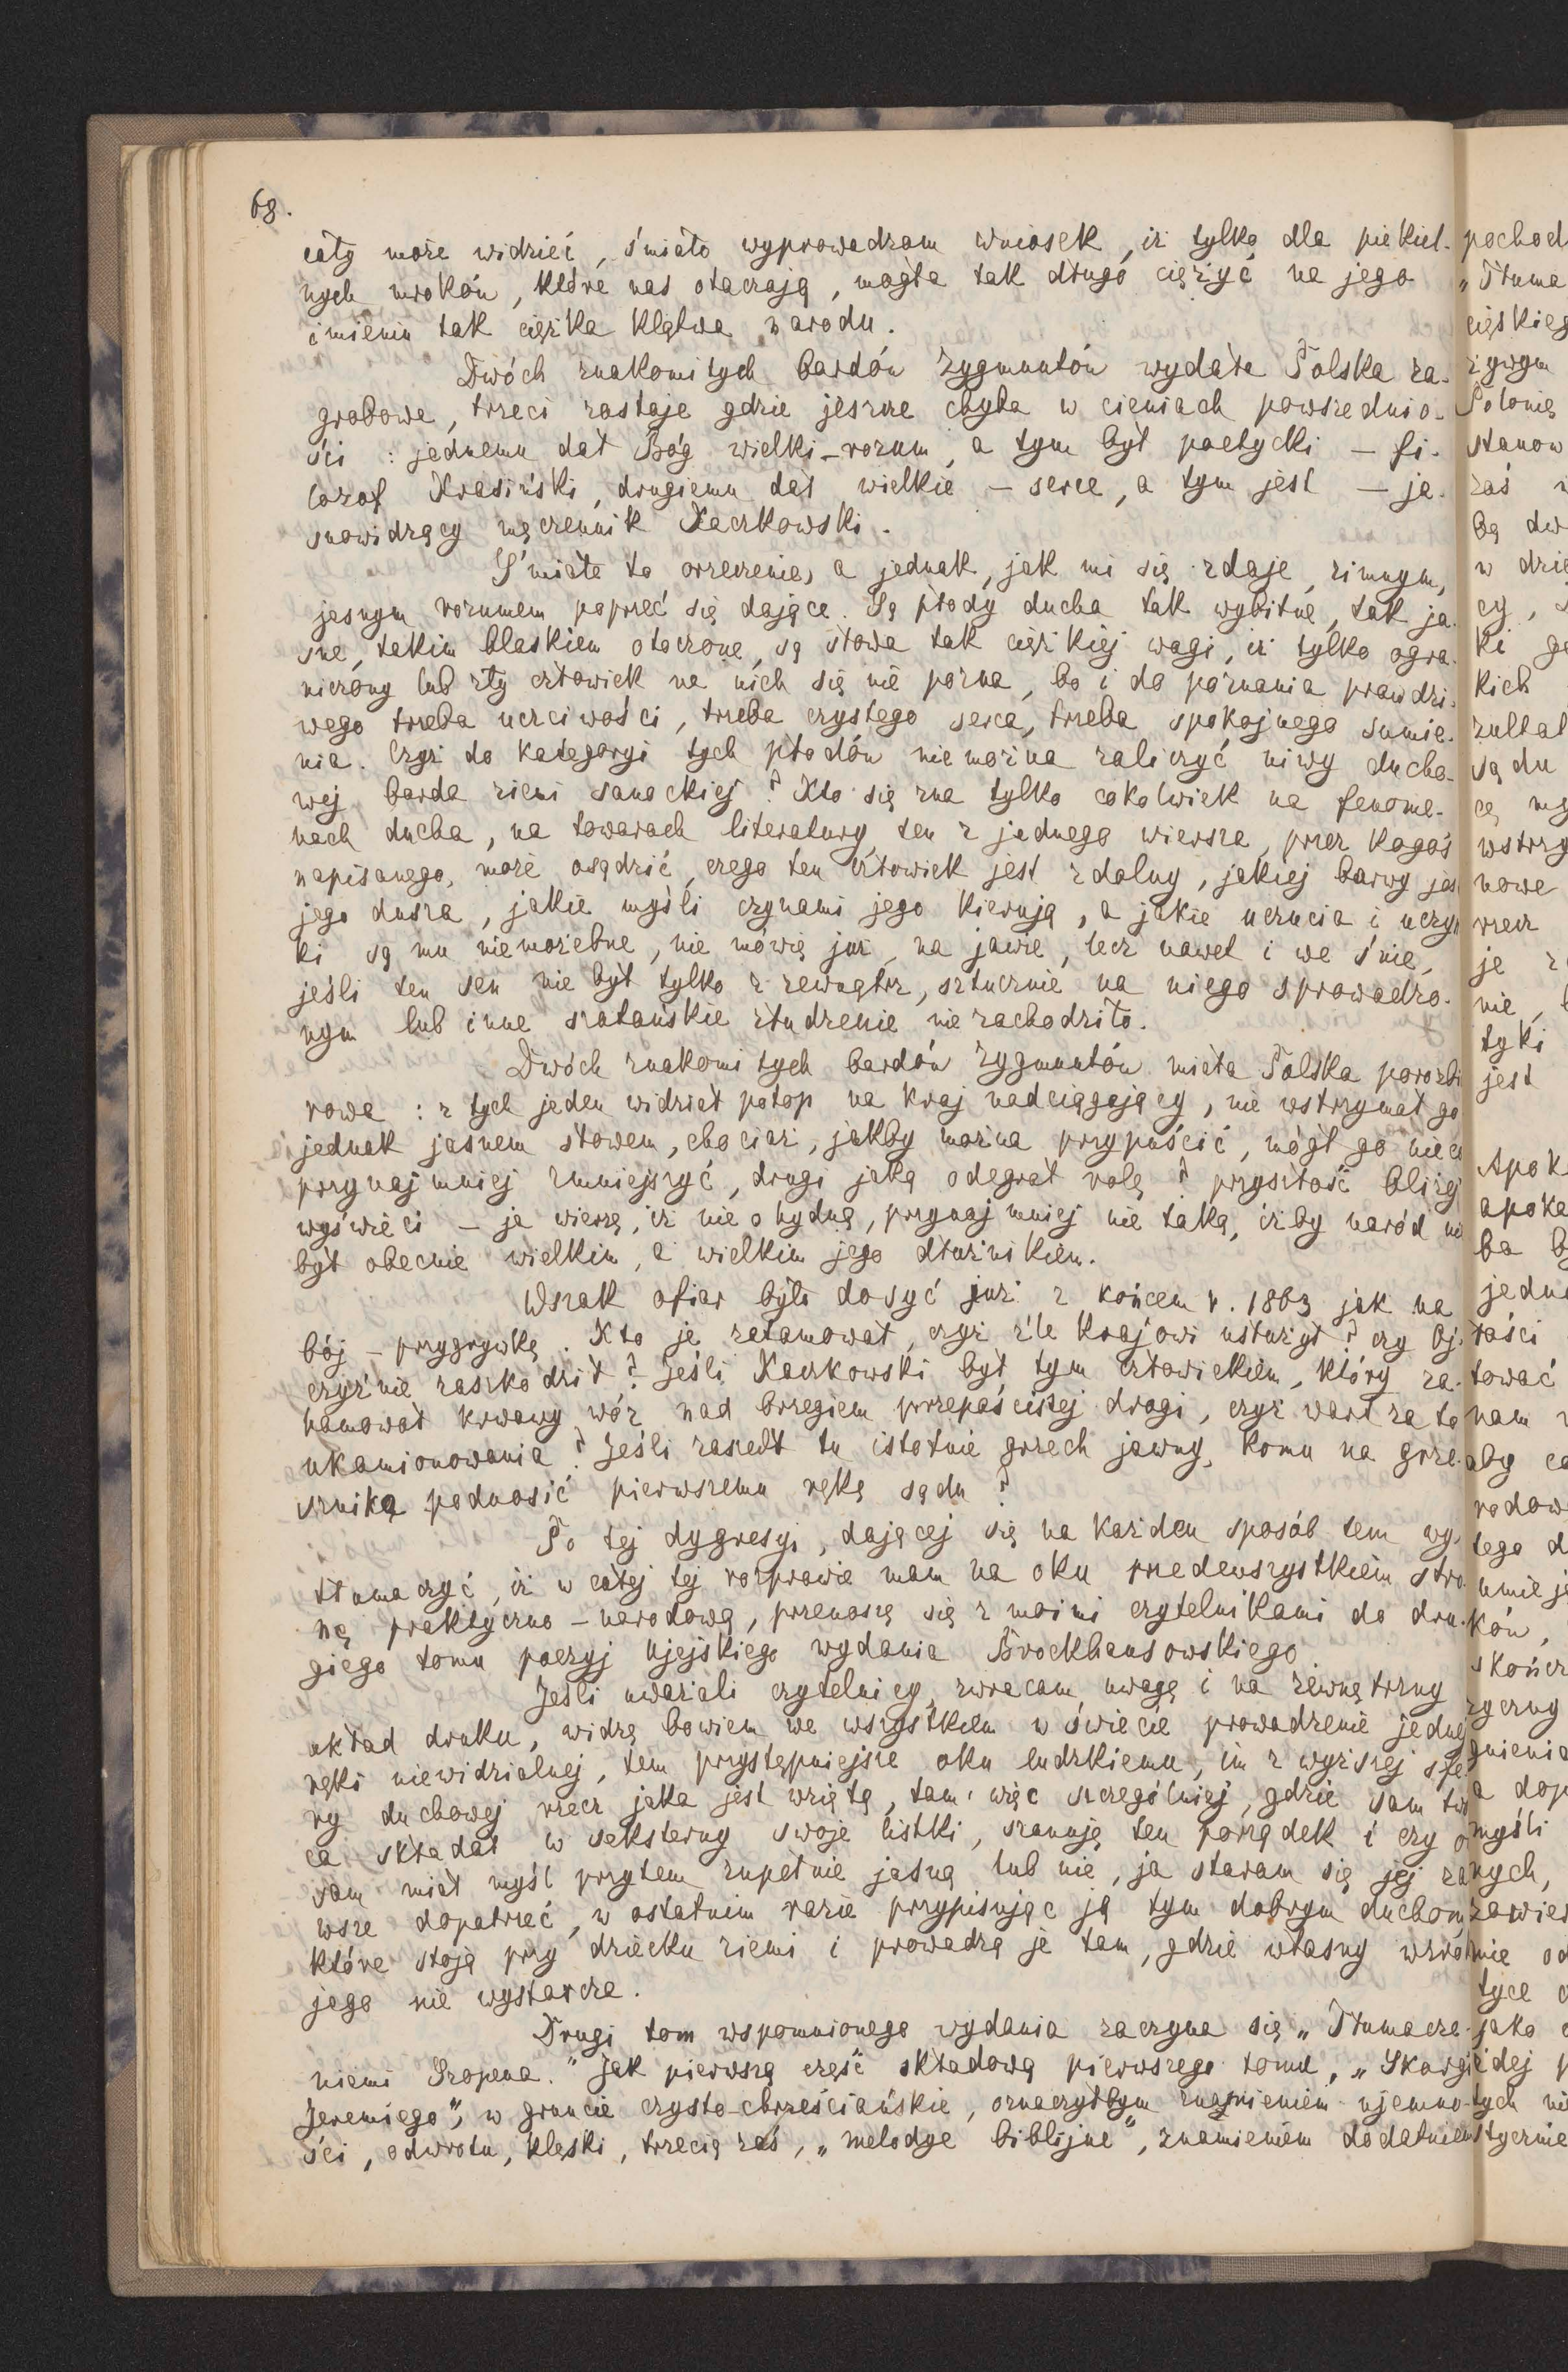 68.
cały może widzieć, śmiało wyprowadzam wniosek, iż tylko dla piekiel-
nych mroków, które nas otaczają, mogła tak długo ciężyć na jego
imieniu tak ciężka klątwa narodu.
Dwóch znakomitych bardów Zygmuntów wydała Polska za-
grobowa, trzeci zostaje gdzie jeszcze chyba w cieniach powszednio-
ści: jednemu dał Bóg wielki-rozum, a tym był poetycki — fi-
lozof Krasiński, drugiemu dał wielkie — serce, a tym jest — ja-
snowidzący męczennik Kaczkowski.
Śmiałe to orzeczenie, a jednak, jak mi się zdaje, zimnym,
jasnym rozumem poprzeć się dające. Są płody ducha tak wybitne, tak ja-
sne, takim blaskiem otoczone, są słowa tak ciężkiéj wagi, iż tylko ogra-
niczony lub zły człowiek na nich się nie pozna, bo i do poznania prawdzi-
wego trzeba uczciwości, trzeba czystego serca, trzeba spokojnego sumie-
nia. Czyż do kategoryi tych płodów nie można zaliczyć niwy ducho-
wej barda ziemi sanockiej? Kto się zna tylko cokolwiek na fenome-
nach ducha, na towarach literatury, ten z jednego wiersza, przez kogoś
napisanego, może osądzić, czego ten człowiek jest zdolny, jakiej barwy jes
jego dusza, jakie myśli czynami jego kierują, a jakie uczucia i uczyn
ki są mu niemożebne, nie mówię już, na jawie, lecz nawet i we śnie,
jeśli ten sen nie był tylko z zewnątrz, sztucznie na niego sprowadzo-
nym lub inne szatańskie złudzenie nie zachodziło.
Dwóch znakomitych bardów Zygmuntów miała Polska porozbi
rowa: z tych jeden widział potop na kraj nadciągający, nie wstrzymał go
jednak jasnem słowem, chociaż, jakby można przypuścić, mógł go nieco
przynajmniej zmniejszyć, drugi jaką odegrał rolę? przyszłość bliżej
wyświeci — ja wierzę, iż nie ohydną, przynajmniej nie taką, iżby naród nie
był obecnie wielkim, a wielkim jego dłużnikiem.
Wszak ofiar było dosyć już z końcem r. 1863 jak na
bój — przygrywkę. Kto je zatamował, czyż źle krajowi usłużył? czy Oj-
czyźnie zaszkodził? Jeśli Kaczkowski był tym człowiekiem, który za-
hamował krwawy wóz nad brzegiem przepaścistej drogi, czyż wart za to
ukamionowania? Jeśli zaszedł tu istotnie grzech jawny, komu na grze-
sznika podnosić pierwszemu rękę sądu?
Po tej dygresyi, dającej się na każden sposób tem wy-
tłumaczyć, iż w całej tej rozprawie mam na oku przedewszystkiem stro
nę praktyczno-narodową, przenoszę się z moimi czytelnikami do dru-
giego tomu poezyj Ujejskiego wydania Brockhausowskiego.
Jeśli uważali czytelnicy, zwracam uwagę i na zewnętrzny
układ druku, widzę bowiem we wszystkiem w świecie prowadzenie jednej
ręki niewidzialnej, tem przystępniejsze oku ludzkiemu, im z wyższej sfe
ry duchowej rzecz jaka jest wziętą, tam więc szczególniej, gdzie sam twó
ca składał w seksterny swoje listki, szanuję ten porządek i czy o
sam miał myśl przytem zupełnie jasną lub nie, ja staram się jej za
wsze dopatrzeć, w ostatnim razie przypisując ją tym dobrym duchom,
które stoją przy dziecku ziemi i prowadzą je tam, gdzie własny wzrok
jego nie wystarcza.
Drugi tom wspomnionego wydania zaczyna się „Tłumacze-
niemi Szopena." Jak pierwszą część składową pierwszego tomu, „Skargi
Jeremiego", w gruncie czysto-chrześciańskie, oznaczyłbym znamieniem ujemno-
ści, odwrotu, klęski, trzecią zaś, „melodye biblijne", znamieniem dodatniem
pochod
„Tłuma
cięskieg
żywym
Polonię
stanow
zaś
bą dw
w dzie
cy,
ki
kich
zultat
sądu
cą my
wstrzy
nowe
rzecz
je
nie,
tyki
jest
Apok
apoka
ba by
jedna
tości
tować
nam
aby
rodow
tego d
umieję
ków,
skończ
zyczny
gnienia
a dop
myśli
nych,
zawier
nie od
tyce
jako
idej
tych ni
stycznie